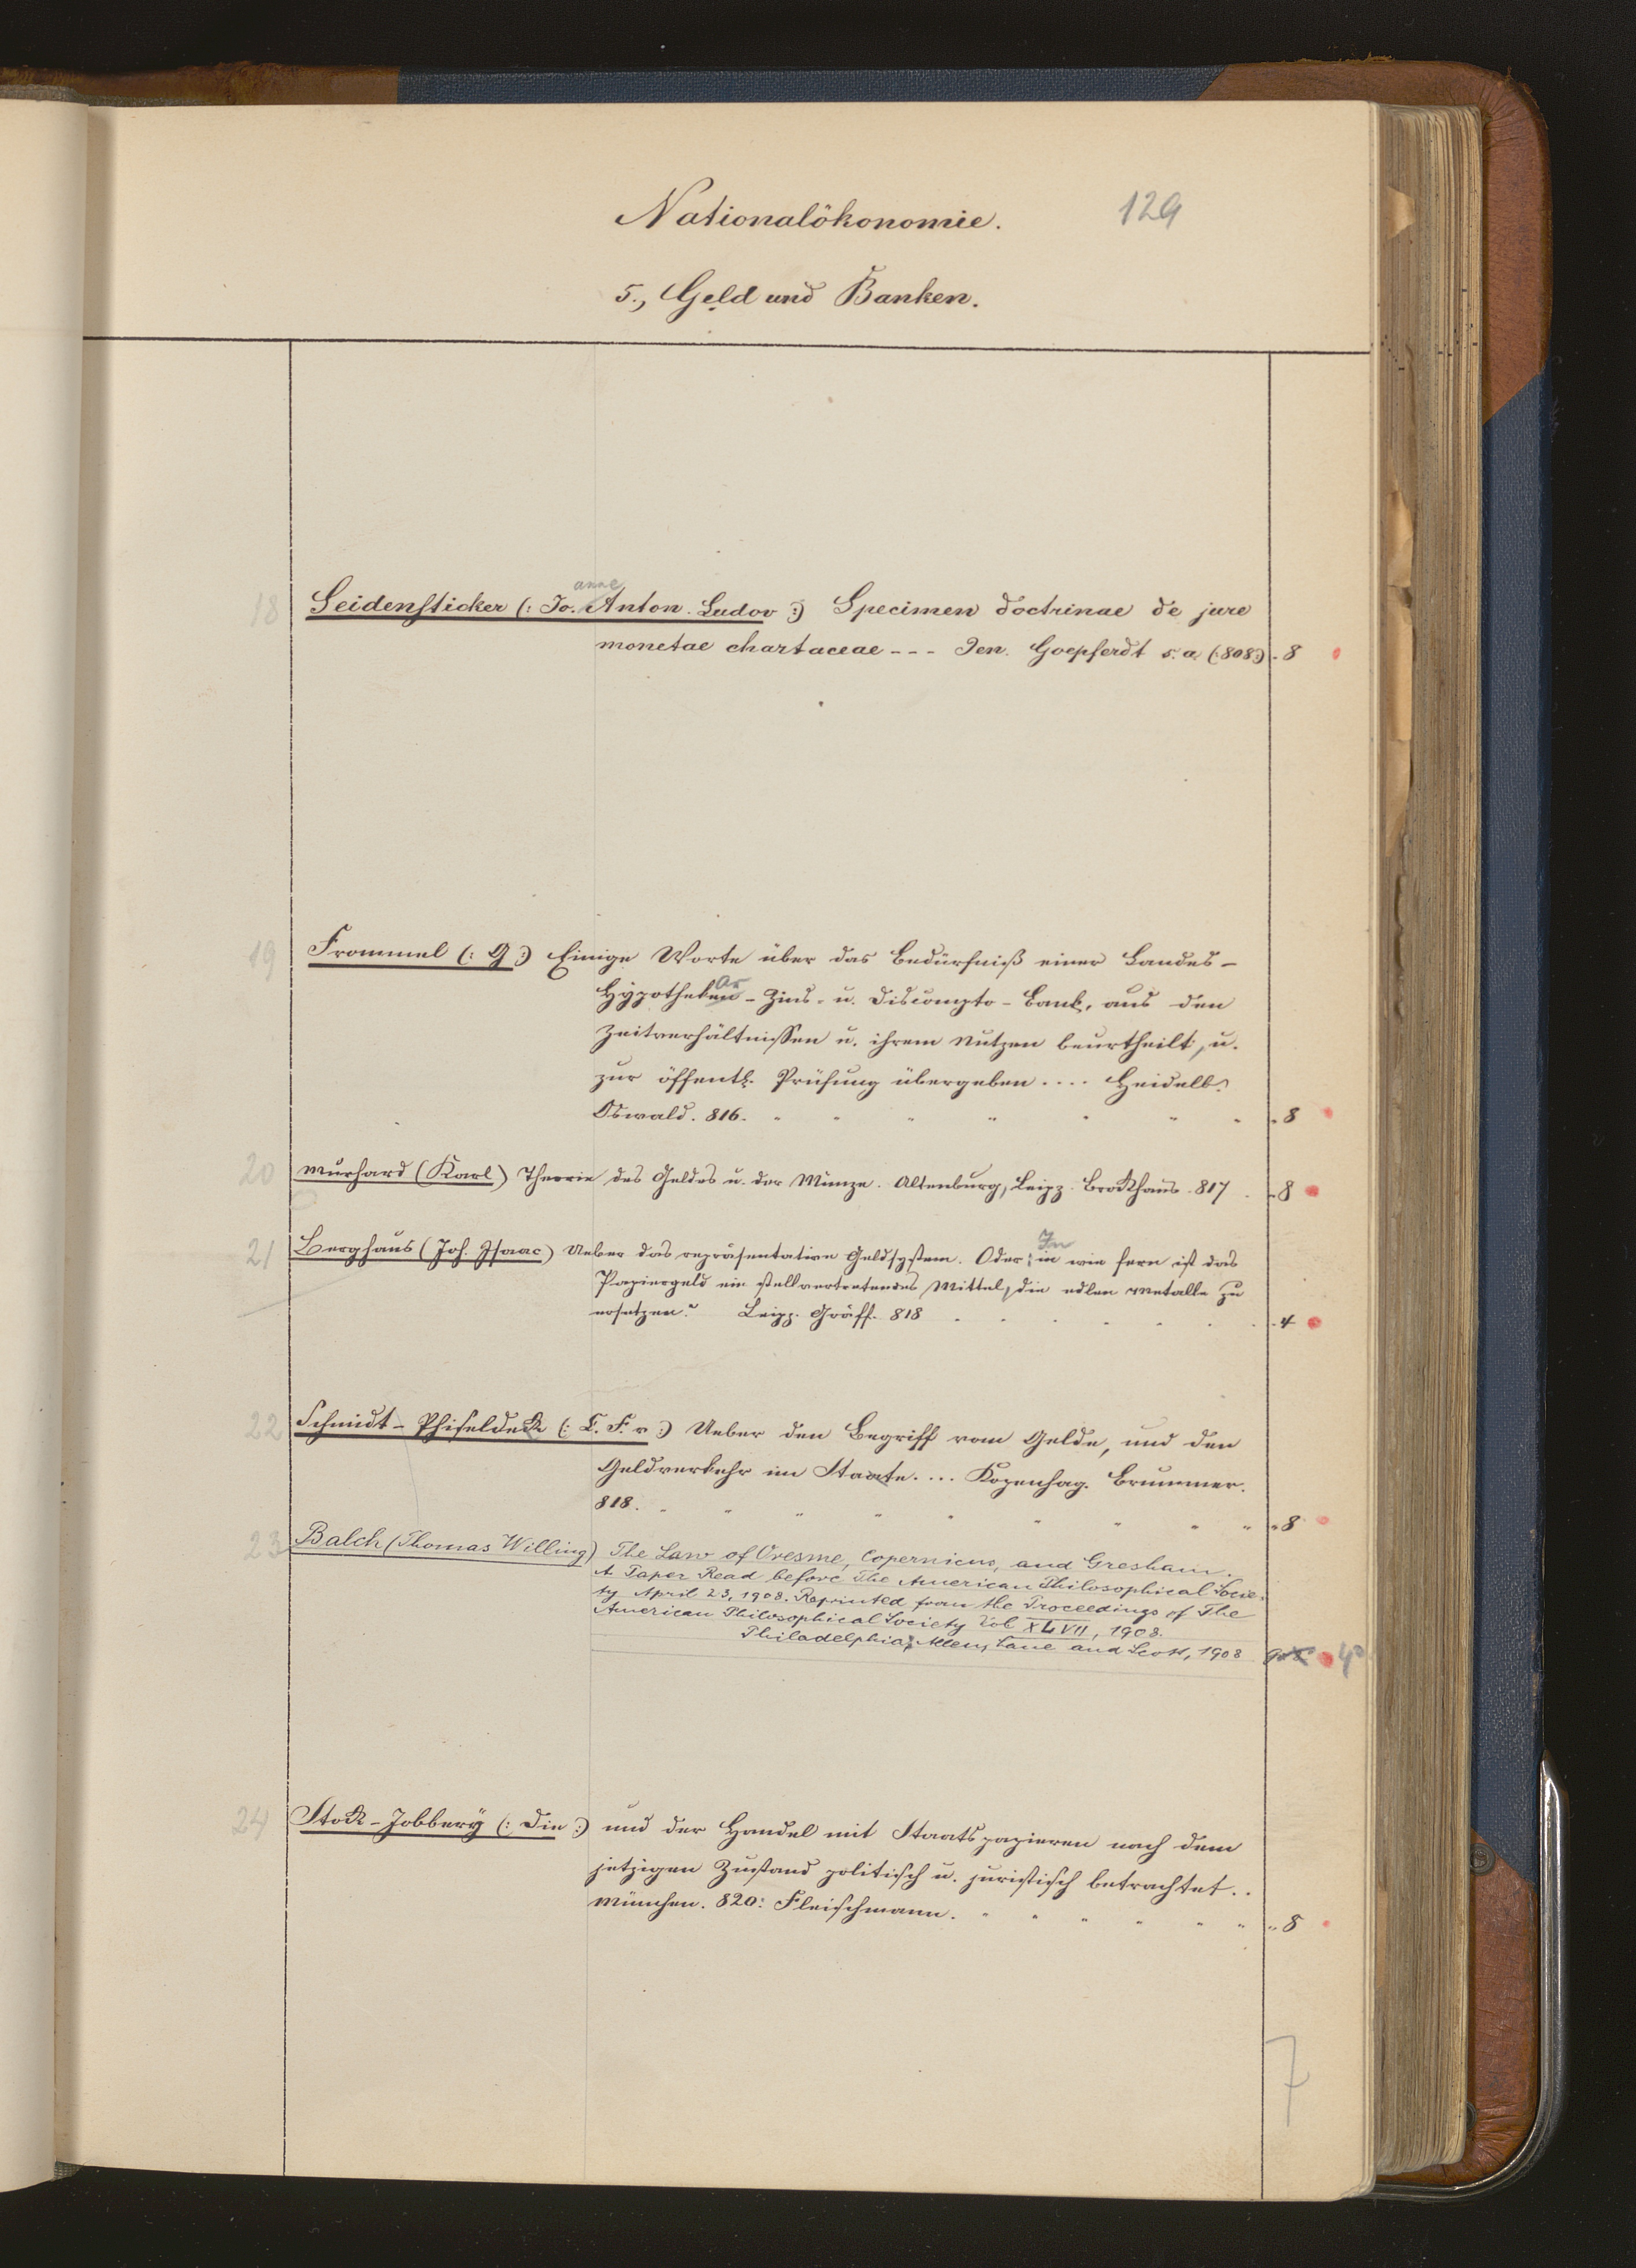 Nationalökonomie.
129
5., Geld und Banken.
anne
18 Seidensticker (: Jo. Anton. Ludov :) Specimen doctrinae de jure
monetae chartaceae - - - Jen. Goepferdt s. a. (:808:) . 8
19 Frommel (: G :) Einige Worte über das Bedürfniß einer Landes-
ar
Hypotheken - Zins- u. Discompto - Bank, aus den
Zeitverhältnissen u. ihrem Nutzen beurtheilt, u.
zur öffentl. Prüfung übergeben .... Heidelb.
Oswald. 816. . 8
20 Murhard (Karl) Theorie des Geldes u. der Münze. Altenburg, Leipz. Brockhaus. 817 . 8
In
21 Berghaus (Joh. Isaac) Ueber das repräsentative Geldsystem. Oder: in wie fern ist das
Papiergeld ein stellvertretendes Mittel, die edlen Metalle zu
ersetzen? Leipz. Gräff. 818 . 4
22 Schmidt-Phiseldeck (: C. F. v :) Ueber den Begriff vom Gelde, und den
Geldverkehr im Staate. ... Kopenhag. Brummer.
818. . 8
23 Balch (Thomas Willing) The Law of Oresme, Copernicus, and Gresham.
A Paper Read before The American Philosophical Socie-
ty April 23, 1908. Reprinted from the Proceedings of The
American Philosophical Society Vol XLVII, 1908.
Philadelphia: Allen, Lane and Scott, 1908 4°
24 Stock-Jobbery (: Die :) und der Handel mit Staatspapieren nach dem
jetzigen Zustand politisch u. juristisch betrachtet..
München. 820: Fleischmann. . 8
7